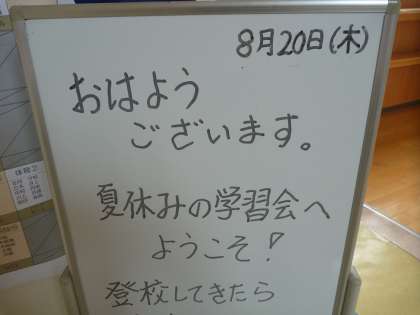 8月20日(木)
おはよう
ございます。
夏休みの学習会へ
ようこそ!
登校してきたら